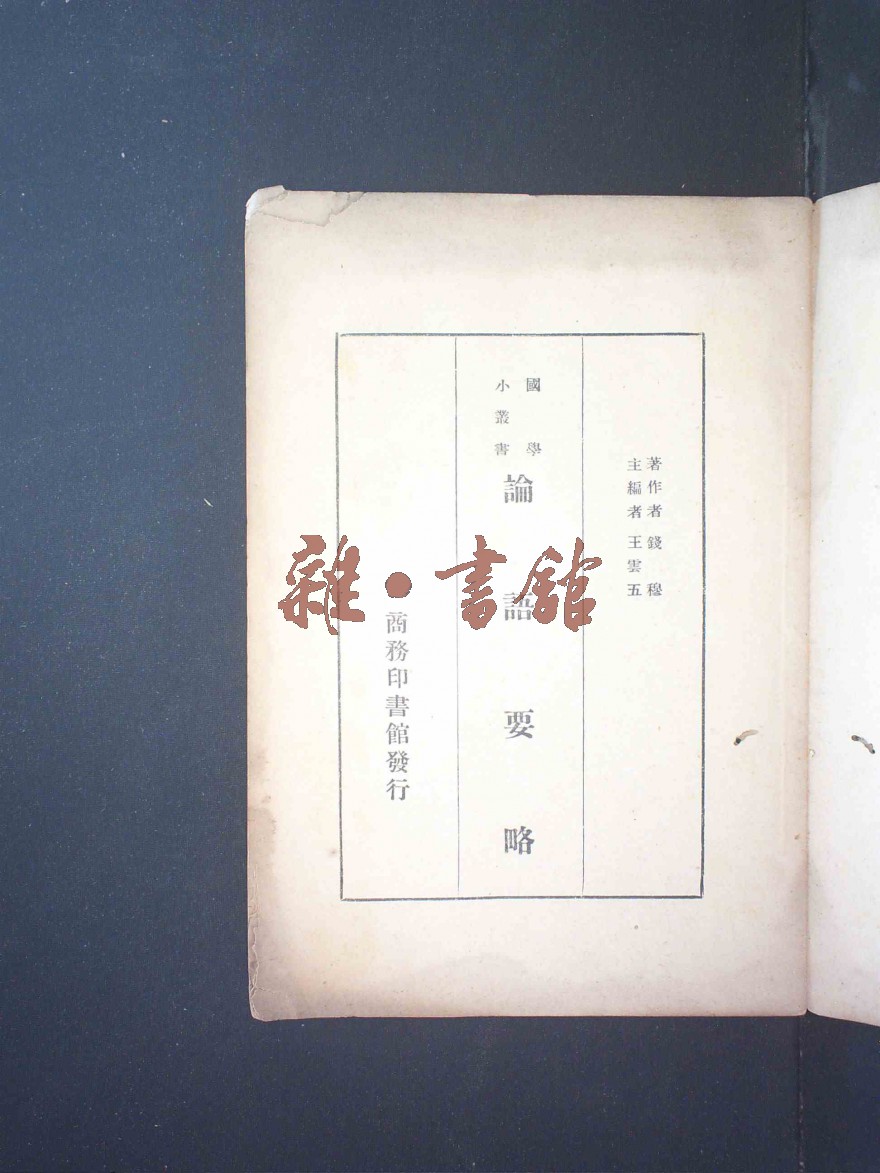 著作者錢穆
主編者王雲五
國學
小叢書
論語要略
商務印書館發行
雜·書館